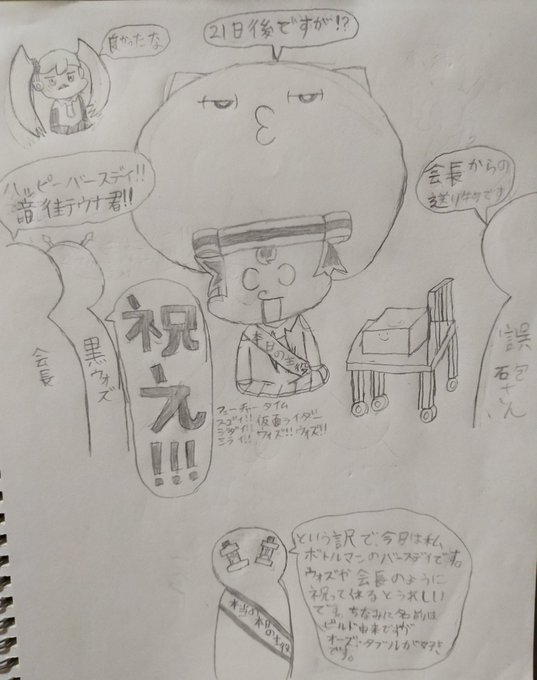 良かったな
21日後ですが!?
ハッピーバースデイ!!
君!!
会長からの
送り物です
会長
黒ウォズ
祝え!!!
本日の主役
フューチャータイム
スゴイ!! 仮面ライダー
ジダイ!! ウォズ!! ウォズ!!
ミライ!!
誤
砲さん
という訳で今日は私
ボトルマンのバースデイです。
ウォズや会長のように
祝って
うれしい
です。ちなみに名前は
ビルド由来ですが
オーズ・ダブルが好き
です。
本当の本日の主役